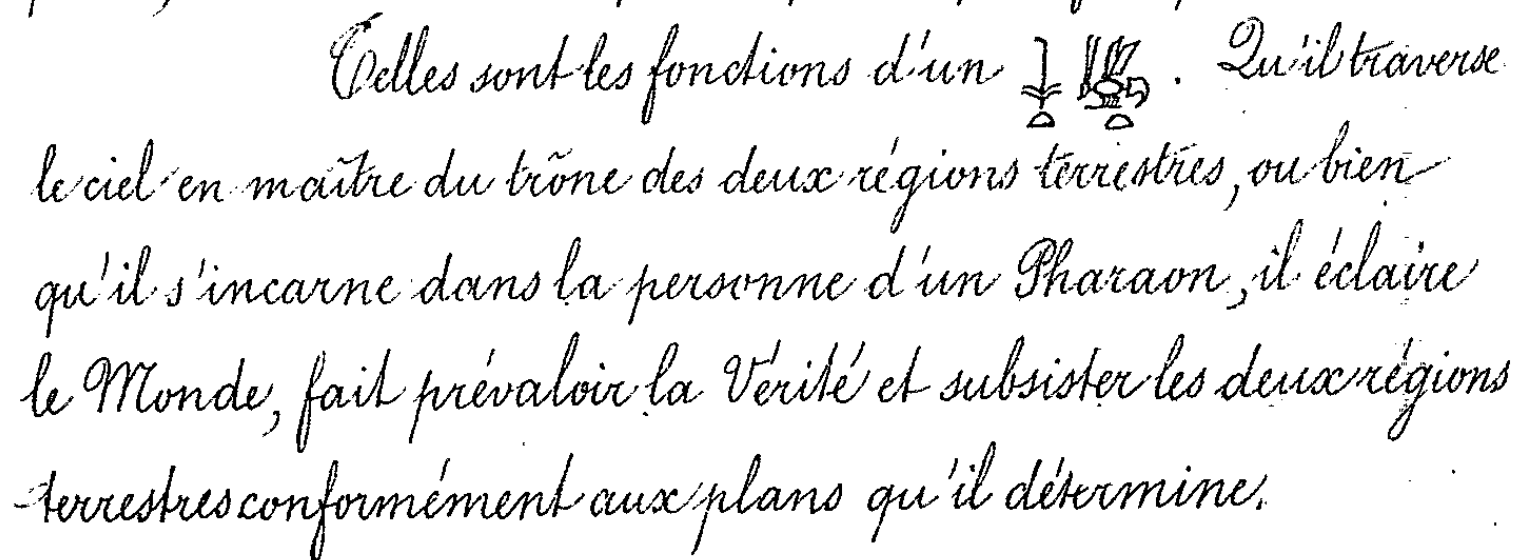 Telles sont les fonctions d'un 𓇓𓏏𓆤𓏏. Qu'il traverse
le ciel en maître du trône des deux régions terrestres, ou bien
qu'il s'incarne dans la personne d'un Pharaon, il éclaire
le Monde, fait prévaloir la Vérité et subsister les deux régions
terrestres conformément aux plans qu'il détermine.